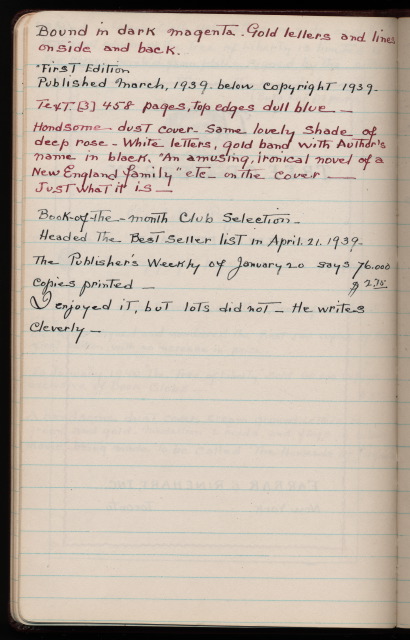 Bound in dark magenta. Gold letters and lines
on side and back.
"First Edition
Published March, 1939- below copyright 1939-
Text. [3] 458 pages, Top edges dull blue —
Handsome dust cover- same lovely shade of
deep rose - White letters, gold band with Author's
name in black. "An amusing, ironical novel of a
New England family" etc- on the cover —
Just what it is —
Book-of-the-month Club Selection-
Headed The Best Seller list in April. 21. 1939-
The Publisher's Weekly of January 20 says 76.000
copies printed — $2.75
I enjoyed it, but lots did not - He writes
cleverly -
FARRAR & RINEHART, INC
New York Toronto